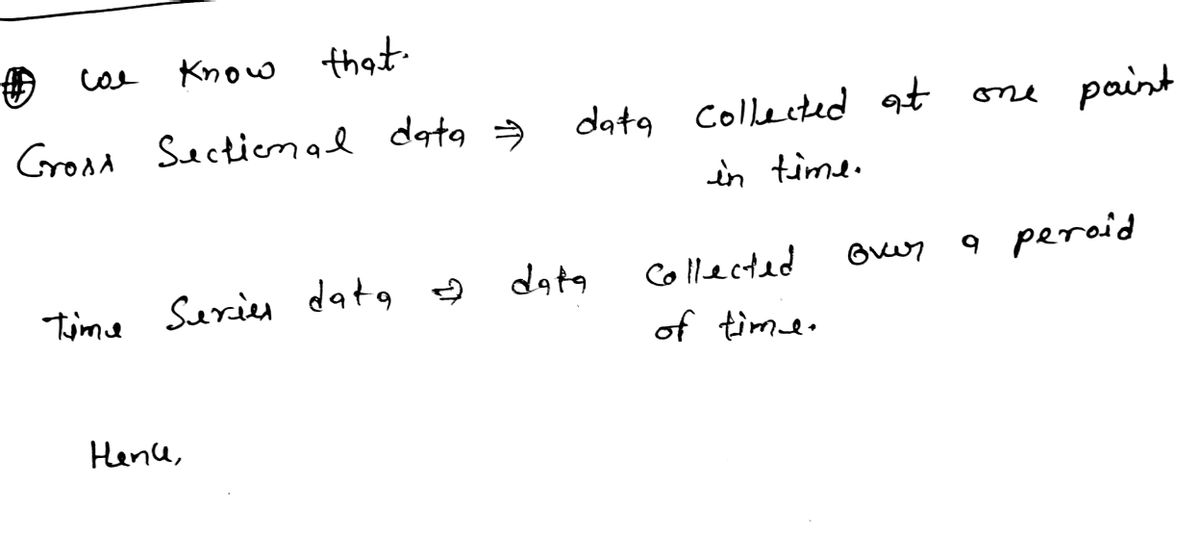 # we know that.
Cross Sectional data ⇒ data collected at one point
in time.
Time Series data ⇒ data collected over a peroid
of time.
Hence,